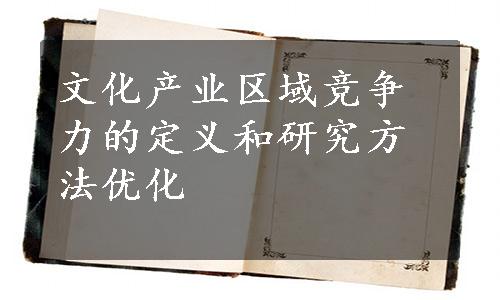 文化产业区域竞争
力的定义和研究方
法优化